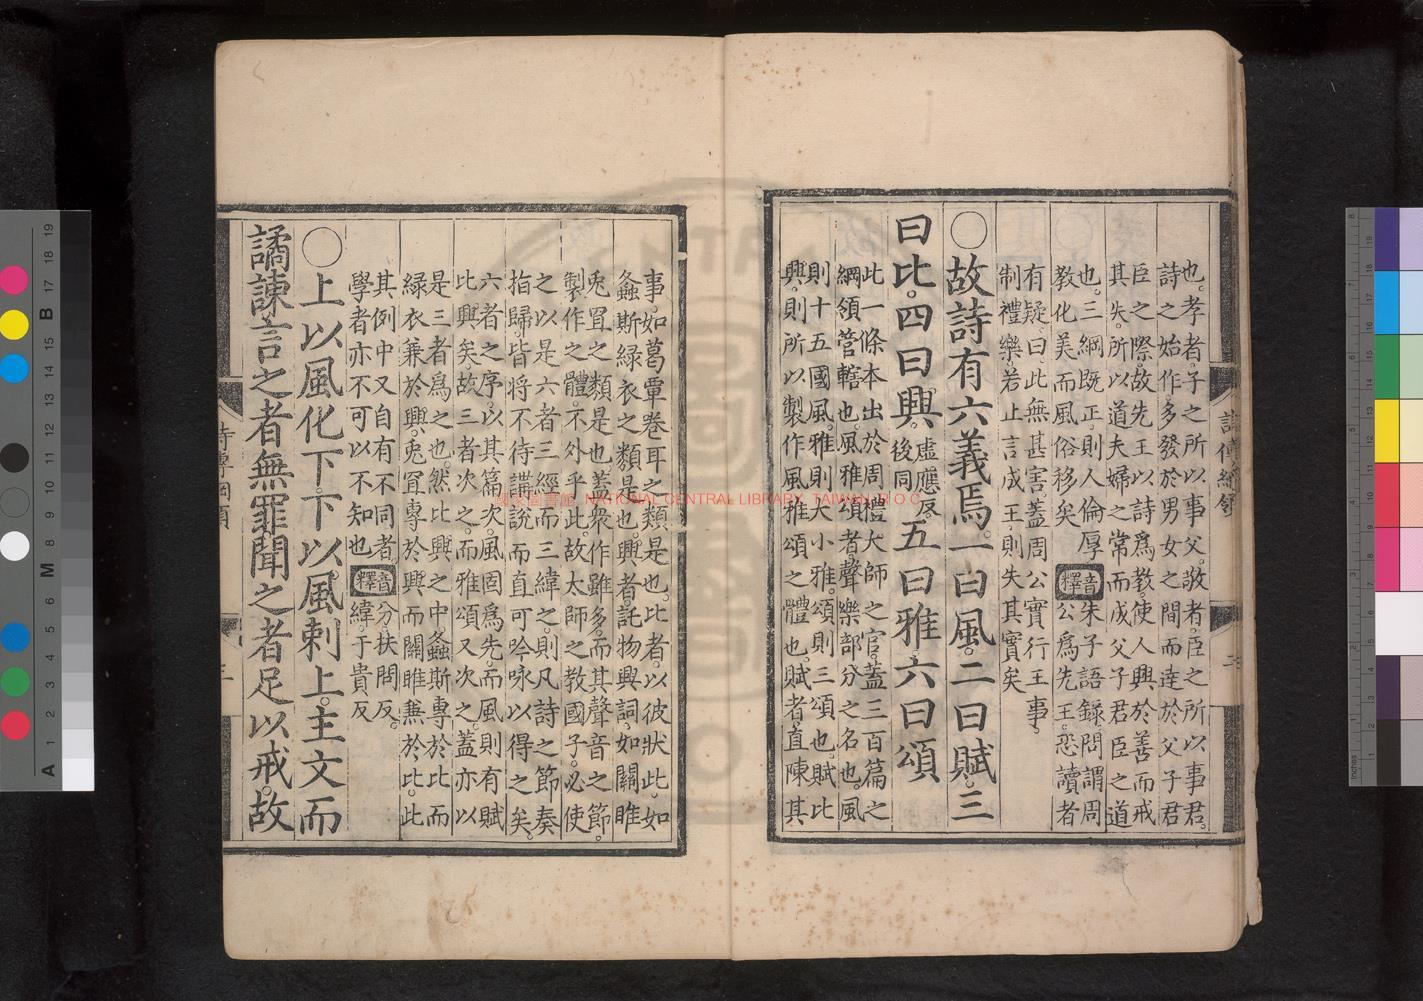 也。孝者、子之所以事父。敬者、臣之所以事君。
詩之始作、多發於男女之間、而達於父子君
臣之際、故先王以詩爲教、使人興於善而戒
其失、所以道夫婦之常、而成父子君臣之道
也。三綱既正、則人倫厚、
教化美、而風俗移矣。
音釋
朱子語錄問謂周
公爲先王、恐讀者
有疑、曰此無甚害、蓋周公實行王事、
制禮樂、若止言成王、則失其實矣
○故詩有六義焉。一曰風。二曰賦。三
曰比。四曰興。
虛應反。
後同
五曰雅。六曰頌
此一條本出於周禮大師之官。蓋三百篇之
綱領管轄也。風雅頌者、聲樂部分之名也。風
則十五國風。雅則大小雅。頌則三頌也。賦比
興、則所以製作風雅頌之體也。賦者、直陳其
詩傳綱領
二
事。如葛覃卷耳之類是也。比者、以彼狀此、如
螽斯綠衣之類是也。興者、託物興詞、如關雎
兎罝之類是也。蓋衆作雖多、而其聲音之節。
製作之體。不外乎此。故太師之教國子。必使
之以是六者三經而三緯之、則凡詩之節奏
指歸、皆將不待講說、而直可吟咏以得之矣。
六者之序、以其篇次。風固爲先、而風則有賦
比興矣、故三者次之、而雅頌又次之、蓋亦以
是三者爲之也。然比興之中、螽斯專於比、而
綠衣兼於興。兎罝專於興、而關雎兼於比。此
其例中又自有不同者
學者亦不可以不知也
音釋
分扶問反。
緯于貴反
○上以風化下。下以風刺上。主文而
譎諫、言之者無罪、聞之者足以戒。故
詩傳綱領
國家圖書館 NATIONAL CENTRAL LIBRARY, TAIWAN, R.O.C.